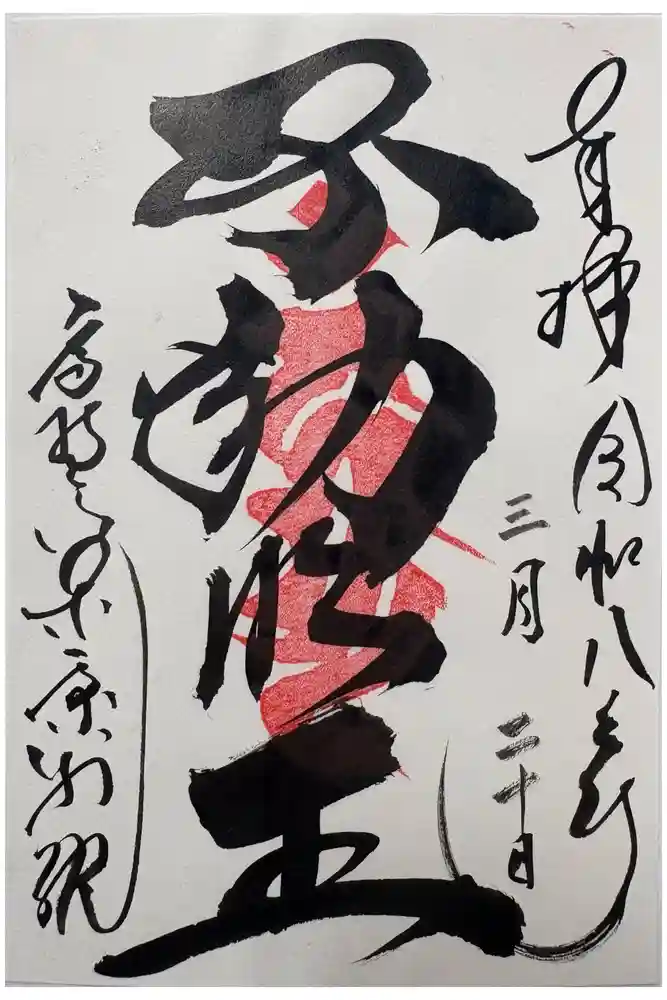 奉拝 令和八年
三月 二十日
不動明王
高野山東京別院